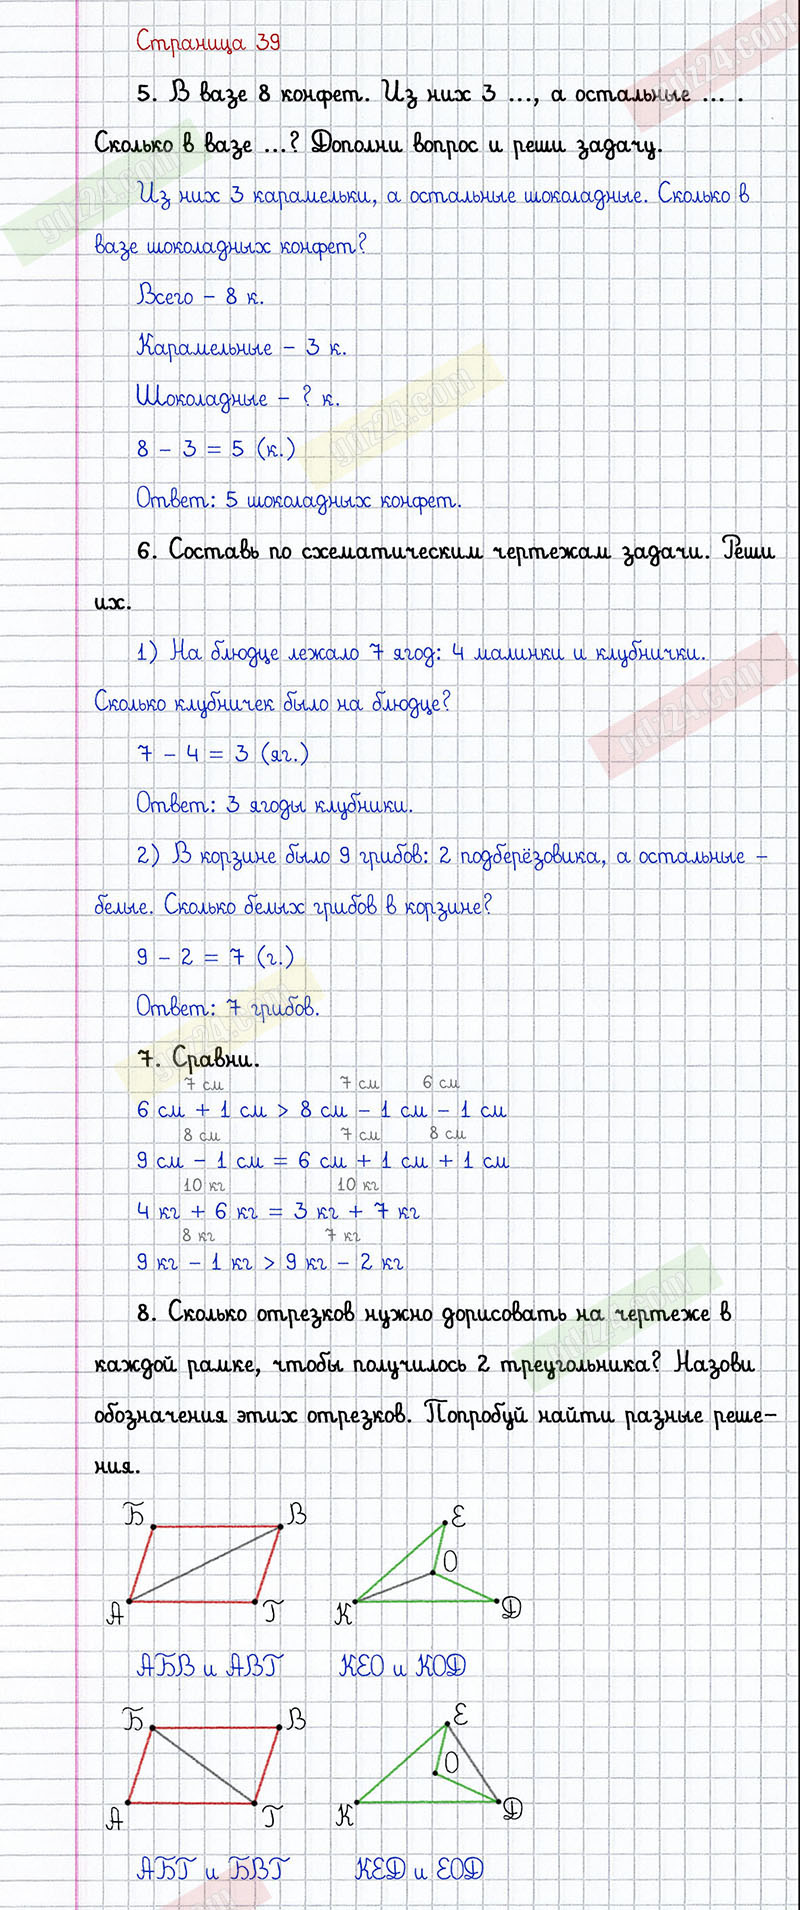 Страница 39
5. В вазе 8 конфет. Из них 3 ..., а остальные ... .
Сколько в вазе ...? Дополни вопрос и реши задачу.
Из них 3 карамельки, а остальные шоколадные. Сколько в
вазе шоколадных конфет?
Всего – 8 к.
Карамельные – 3 к.
Шоколадные – ? к.
8 – 3 = 5 (к.)
Ответ: 5 шоколадных конфет.
6. Составь по схематическим чертежам задачи. Реши
их.
1) На блюдце лежало 7 ягод: 4 малинки и клубнички.
Сколько клубничек было на блюдце?
7 – 4 = 3 (яг.)
Ответ: 3 ягоды клубники.
2) В корзине было 9 грибов: 2 подберёзовика, а остальные –
белые. Сколько белых грибов в корзине?
9 – 2 = 7 (г.)
Ответ: 7 грибов.
7. Сравни.
7 см 7 см 6 см
6 см + 1 см > 8 см – 1 см – 1 см
8 см 7 см 8 см
9 см – 1 см = 6 см + 1 см + 1 см
10 кг 10 кг
4 кг + 6 кг = 3 кг + 7 кг
8 кг 7 кг
9 кг – 1 кг > 9 кг – 2 кг
8. Сколько отрезков нужно дорисовать на чертеже в
каждой рамке, чтобы получилось 2 треугольника? Назови
обозначения этих отрезков. Попробуй найти разные реше-
ния.
Б В Е
О
А Г К Д
АБВ и АВГ КЕО и КОД
Б В Е
О
А Г К Д
АБГ и БВГ КЕД и ЕОД
gdz24.com
gdz24.com
gdz24.com
gdz24.com
gdz24.com
gdz24.com